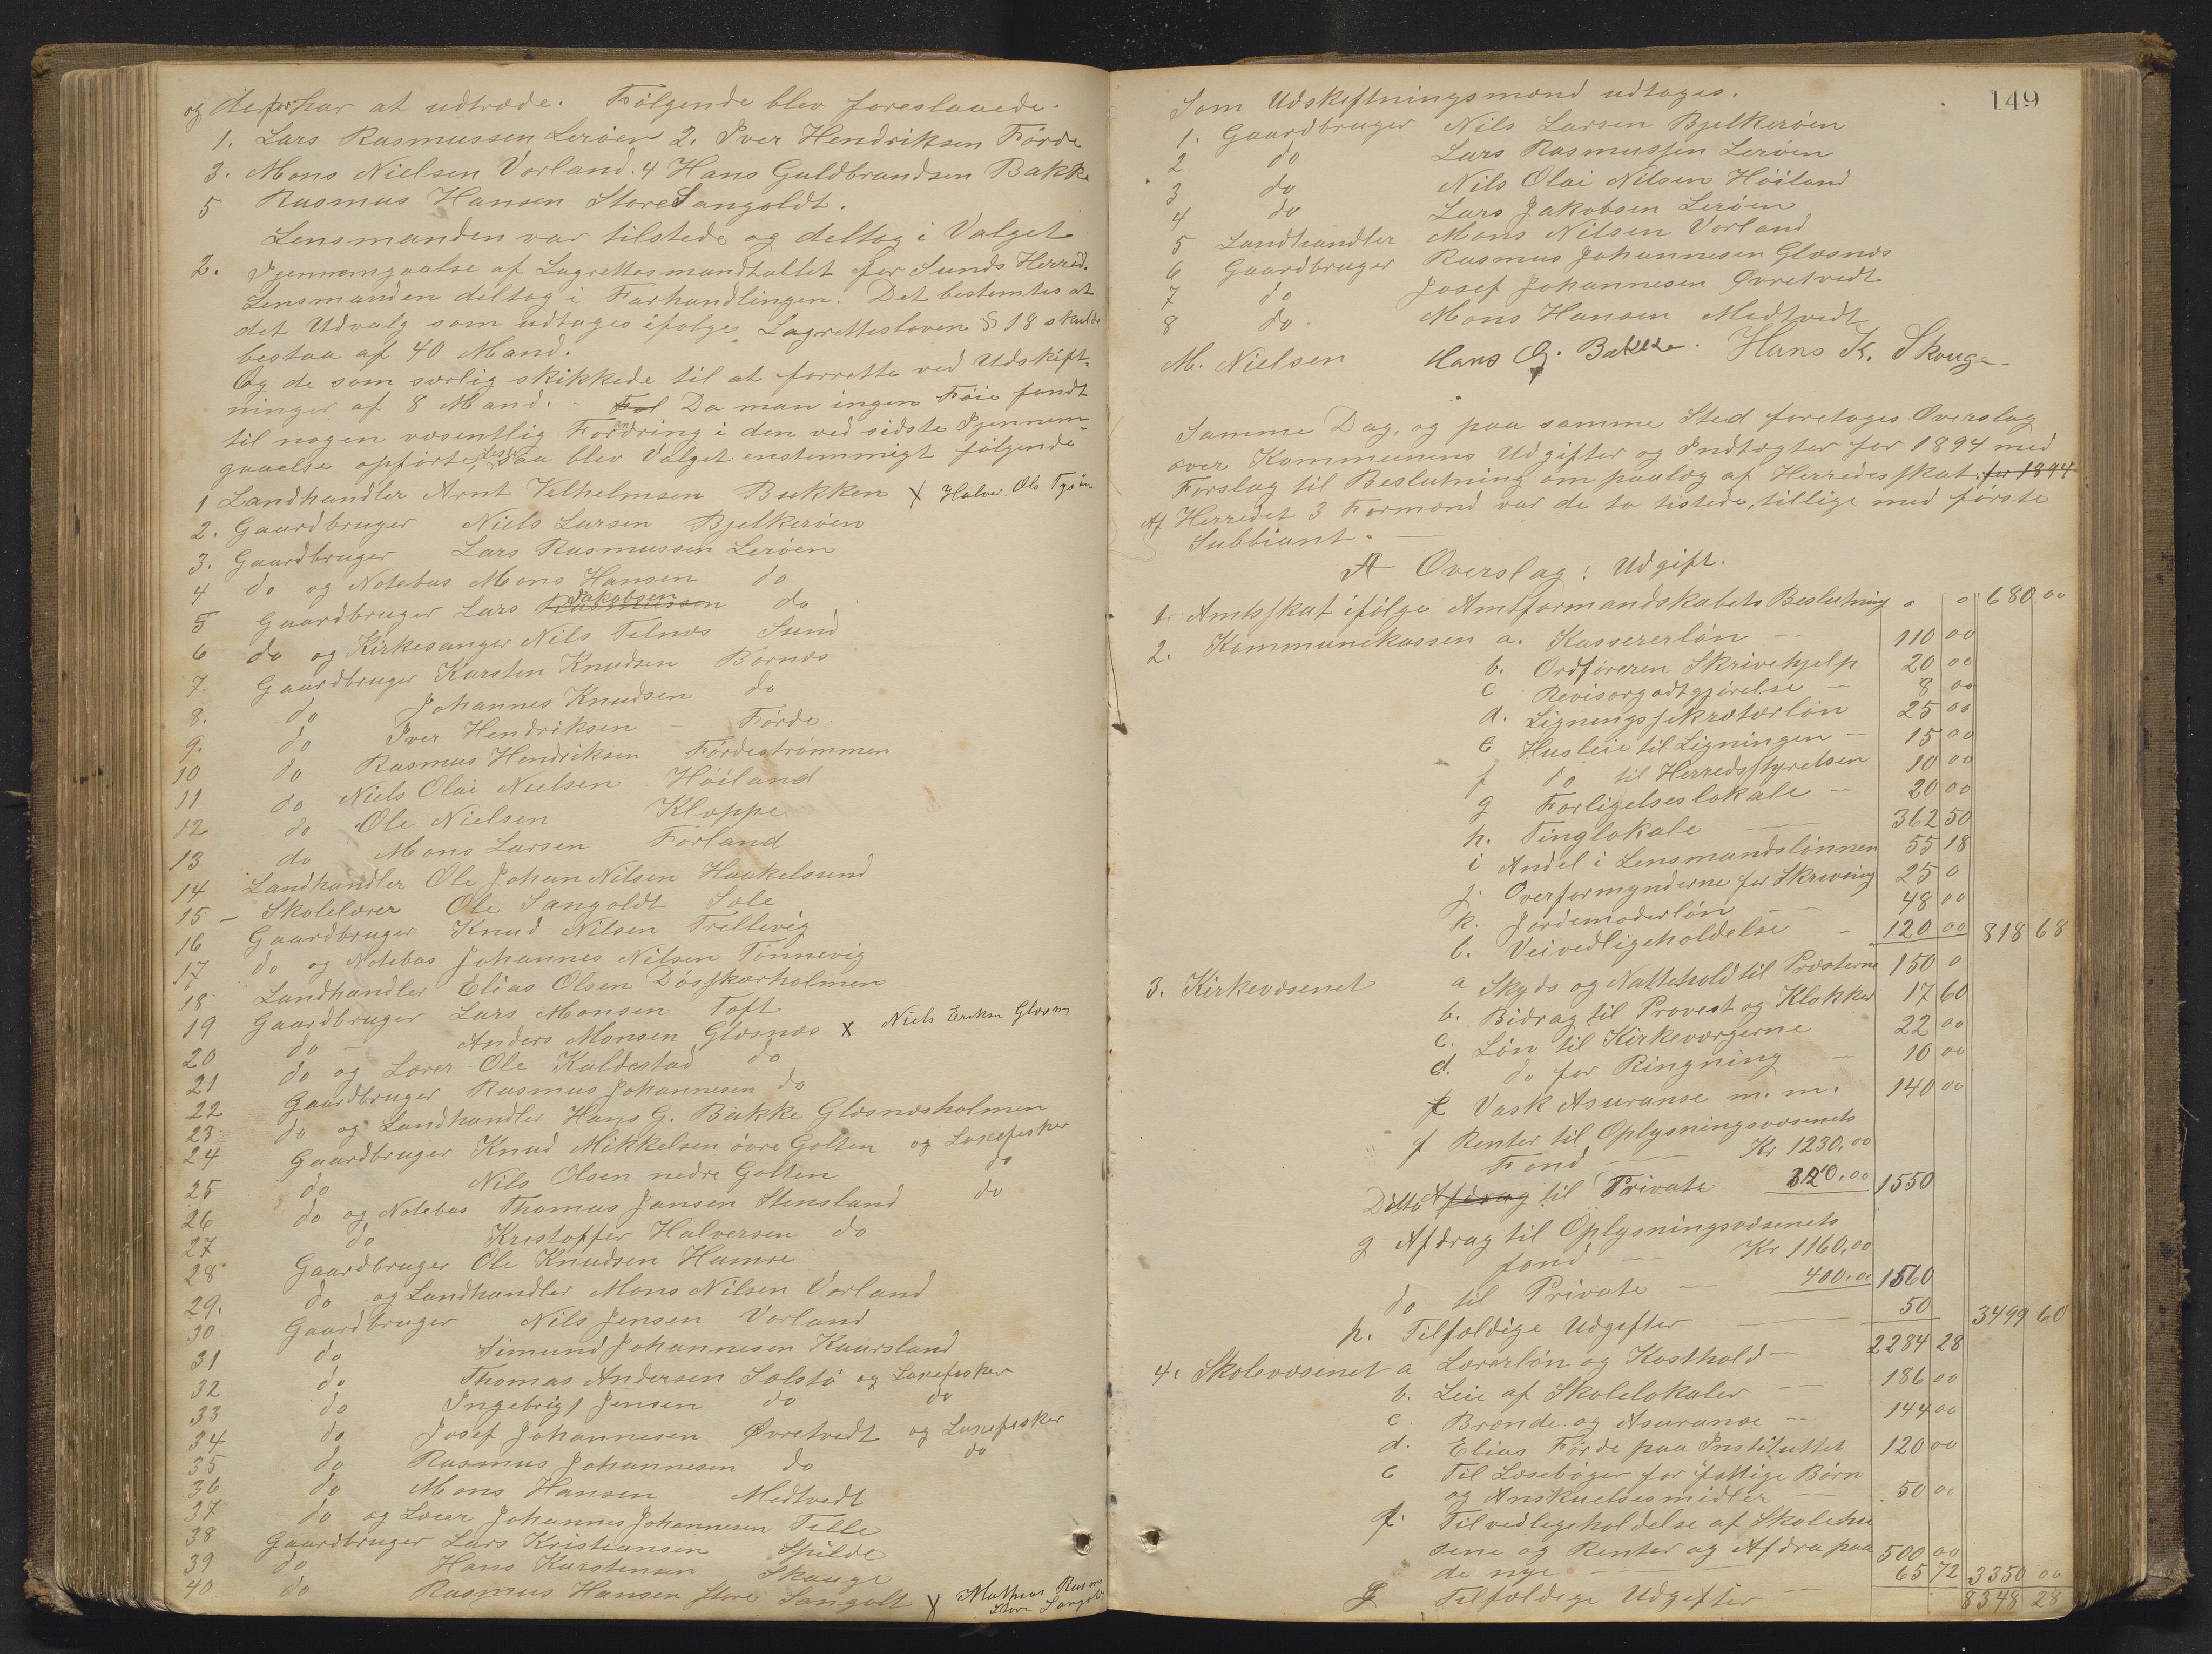 og derfor har at udtræde. Følgende blev foreslaaede.
1. Lars Rasmussen Lerøen 2. Iver Hendriksen Förde
3. Mons Nielsen Vorland. 4 Hans Guldbrandsen Bakke
5 Rasmus Hansen Store Sangoldt.
Lensmanden var tilstede og deltog i Valget
2. Gjennemgaaelse af Lagrettesmandtallet for Sunds Herred.
Lensmanden deltog i Forhandlingen. Det bestemtes at
det Udvalg som udtages ifølge Lagrettesloven § 18 skulde
bestaa af 40 Mand.
Og de som særlig skikkede til at forrette ved Udskift-
ninger af 8 Mand. - Fol Da man ingen Föie fandt
til nogen væsentlig Forandring i den ved sidste Gjennem-
gaaelse opförte, saa blev Valget enstemmigt fölgende
1 Landhandler Arnt Velhelmsen Bukken X Halvor Ols Tysön
2. Gaardbruger Niels Larsen Bjelkeröen
3. Gaardbruger Lars Rasmussen Leröen
4 do og Notebas Mons Hansen do
5 Gaardbruger Lars Rasmussen Jakobsen do
6 do og Kirkesanger Nils Telnæs Sund
7. Gaardbruger Karsten Knudsen Börnæs
8. do Johannes Knudsen do
9. do Iver Hendriksen Förde
10 do Rasmus Hendriksen Fördeströmmen
11 do Niels Olai Nielsen Höiland
12 do Ole Nielsen Kloppe
13 do Mons Larsen Forland
14 Landhandler Ole Johan Nilsen Haakelsund
15 - Skolelærer Ole Sangoldt Sæle
16 Gaardbruger Knud Nilsen Trellevig
17 do og Notebas Johannes Nilsen Tönnevig
18 Landhandler Elias Olsen Dösskærholmen
19 Gaardbruger Lars Monsen Toft
20 do - Anders Monsen Glæsnæs X Niels Eriksn Glæsnæs
21 do og Lærer Ole Kaldestad do
22 Gaardbruger Rasmus Johannesen do
23 do og Landhandler Hans G. Bakke Glæsnæsholmen
24 Gaardbruger Knud Mikkelsen övre Golten og Laxefisker
25 do Nils Olsen nedre Golten do
26 do og Notebas Thomas Jansen Stensland do
27 do Kristoffer Halversen do
28 Gaardbruger Ole Knudsen Hamre
29. do og Landhandler Mons Nilsen Vorland
30 Gaardbruger Nils Jensen Vorland
31 do Simund Johannesen Kausland
32 do Thomas Andersen Sælstö og Laxefisker
33 do Ingebrigt Jensen do do
34 do Josef Johannesen Øvretvedt og Laxefisker
35 do Rasmus Johannesen do do
36 do Mons Hansen Medtvedt
37 do og Lærer Johannes Johannesen Telle
38 Gaardbruger Lars Kristiansen Spilde
39 do Hans Karstensen Skauge
40 do Rasmus Hansen store Sangolt X Mathias Rasms
Store Sangolt
149
Som Udskiftningsmænd udtoges.
1. Gaardbruger Nils Larsen Bjelkeröen
2 do Lars Rasmussen Leröen
3 do Nils Olai Nilsen Höiland
4 do Lars Jakobsen Leröen
5 Landhandler Mons Nilsen Vorland
6 Gaardbruger Rasmus Johannesen Glæsnæs
7 do Josef Johannesen Øvretvedt
8 do. Mons Hansen Medtvedt
M. Nielsen Hans G. Bakke. Hans K. Skouge
Samme Dag, og paa samme Sted foretoges Overslag
over Kommunens Udgifter og Indtægter for 1894 med
Forslag til Beslutning om paalæg af Herredesskat. for 1894
Af Herredet 3 Formænd var de to tistede, tillige med förste
Subbiant. -
A Overslag: Udgift.
1. Amtsskat ifölge Amtformandskabets Beslutning " " 680 00
2. Kommunekassen a. Kassererlön - 110 00
b. Ordföreren Skrivehjelp 20 00
c Revisorgodtgjörelse - 8 00
d. Ligningssekretærlön 25 00
e Husleie til Ligningen - 15 00
f do til Herredsstyrelsen 10 00
g Forligelseslokale - 20 00
h. Tinglokale - 362 50
i Andel i Lensmandslönnen 55 18
j. Overformynderne for Skrivning 25 0
k. Jordemoderlön - 48 00
l. Veivedligeholdelse - 120 00 818 68
3. Kirkevæsenet a Skyds og Nattehold til Præsterne 150 0
b. Bidrag til Provest og Klokker 17 60
c. Lön til Kirkeværgerne 22 00
d. do for Ringning - 10 00
e Vask Asuranse m. m. 140 00
f Renter til Oplysningsvæsenets
Fond - Kr 1230.00
Ditto Afdrag til Private 320.00 1550
g Afdrag til Oplysningsvæsenets
fond - Kr 1160.00
do til Private - 400.00 1560
h. Tilfældige Udgifter - 50 3499 60
4. Skolevæsenet a Lærerlön og Kosthold - 2284 28
b. Leie af Skolelokaler - 186 00
c. Brænde og Asuranse - 144 00
d. Elias Förde paa Instituttet 120 00
e Til Læsebøger for fattige Börn
og Anskuelsesmidler - 50 00
f. Tilvedligeholdelse af Skolehu
sene og Renter og Afdra paa 500 00
de nye - 65 72 3350 00
g Tilfældige Udgifter - 8348 28